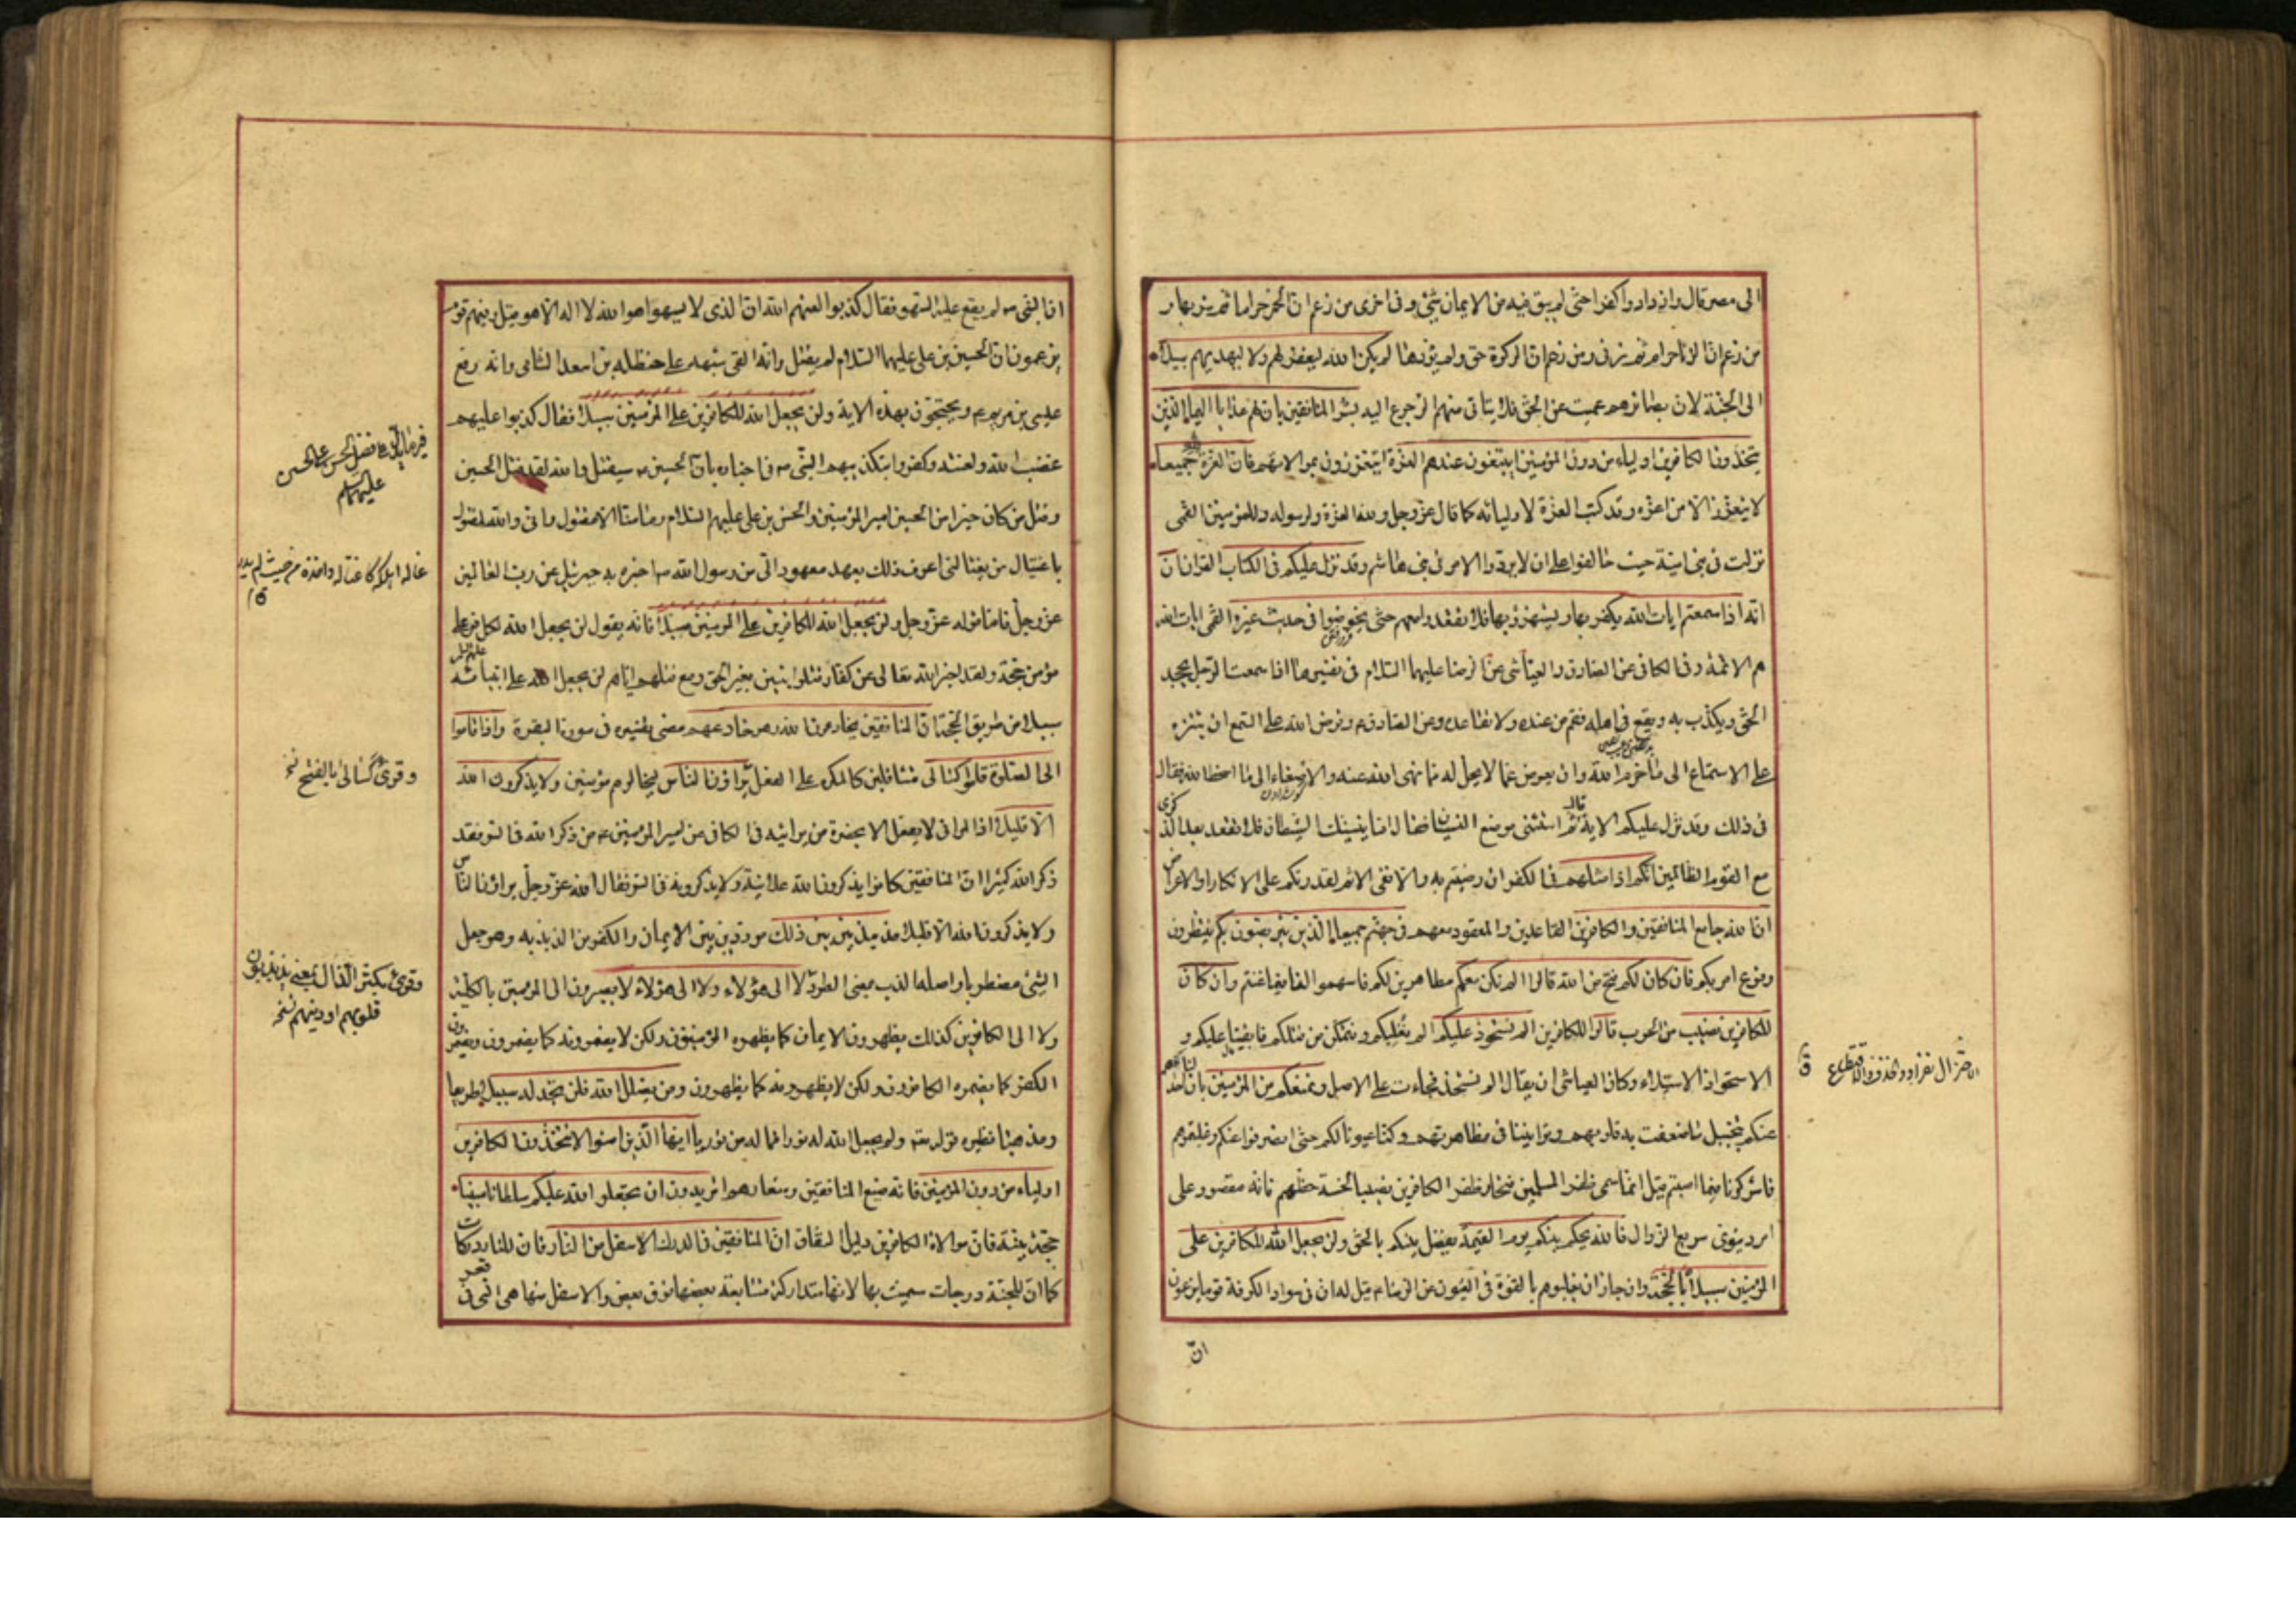 الى مصر قال وازدادوا كفرا حتى لم يبق فيه من الايمان شئ وفى اخرى من زعم ان الخمر حرام ثم شربها و
من زعم ان الزنا حرام ثم زنى ومن زعم ان الزكوة حق ولم يؤدها لم يكن الله ليغفر لهم ولا ليهديهم سبيلا
الى الجنة لان بصائرهم عميت عن الحق فلا يتأتى منهم الرجوع اليه بشر المنافقين بان لهم عذابا اليما الذين
يتخذون الكافرين اولياء من دون المؤمنين ايبتغون عندهم العزة ايتعززون بموالاتهم فان العزة لله جميعا
لا يتعزز الا من اعزه وقد كتب العزة لاوليائه كما قال عز وجل ولله العزة ولرسوله وللمؤمنين القمى
نزلت فى بنى امية حيث خالفوا على ان لا يردوا الامر فى بنى هاشم وقد نزل عليكم فى الكتاب القران ان
انه اذا سمعتم ايات الله يكفر بها ويستهزؤ بها فلا تقعدوا معهم حتى يخوضوا فى حديث غيره القمى ايات الله
هم الائمة وفى الكافى عن الصادق والعياشى عن الرضا عليهما السلام فى تفسيرها اذا سمعت الرجل يجحد
الحق ويكذب به ويقع فى اهله فقم من عنده ولا تقاعده وعن الصادق ع وفرض الله على السمع ان يتنزه
على الاستماع الى ما حرم الله وان يعرض عما لا يحل له مما نهى الله عنه والاصغاء الى ما اسخط الله فقال
فى ذلك وقد نزل عليكم الاية قال ثم استثنى موضع النسيان فقال اما ينسينك الشيطان فلا تقعد بعد الذكرى
مع القوم الظالمين انكم اذا مثلهم فى الكفر ان رضيتم به والا ففى الاثم لقدرتكم على الانكار او الاعراض
ان الله جامع المنافقين والكافرين القاعدين والمقعود معهم فى جهنم جميعا الذين يتربصون بكم ينتظرون
وقوع امر بكم فان كان لكم فتح من الله قالوا الم نكن معكم مظاهرين لكم فاسهموا لنا فيما غنتم وان كان
للكافرين نصيب من الحرب قالوا للكافرين الم نستحوذ عليكم الم نغلبكم ونتمكن من قتلكم فابقينا عليكم و
الاستحواذ الاستيلاء وكان القياس ان يقال الم نستحذ فجاءت على الاصل ونمنعكم من المؤمنين بان اخذلناهم
عنكم بتخييل ما ضعفت به قلوبهم وتوانينا فى مظاهرتهم وكنا عيونا لكم حتى انصرفوا عنكم وغلبتموهم
فاشركونا فيما اصبتم قيل انما سمى ظفر المسلمين فتحا وظفر الكافرين نصيبا لخسة حظهم فانه مقصور على
امر دنيوى سريع الزوال فالله يحكم بينكم يوم القيمة يفصل بينكم بالحق ولن يجعل الله للكافرين على
المؤمنين سبيلا بالحجة وان جاز ان يغلبوهم بالقوة فى العيون عن الرضا ع قيل له ان فى سواد الكوفة قوما يزعمون
ان
ان النبى ص لم يقع عليه السهو فقال كذبوا لعنهم الله ان الذى لا يسهو هو الله لا اله الا هو قيل وفيهم قوم
يزعمون ان الحسين بن على عليهما السلام لم يقتل وانه القى شبهه على حنظلة بن اسعد الشامى وانه رفع
عيسى بن مريم ع ويحتجون بهذه الاية ولن يجعل الله للكافرين على المؤمنين سبيلا فقال كذبوا عليهم
غضب الله ولعنته وكفروا بتكذيبهم النبى ص فى اخباره بان الحسين ع سيقتل والله لقد قتل الحسين
وقتل من كان خيرا من الحسين امير المؤمنين والحسن بن على عليهم السلام وما منا الا مقتول وانى والله لمقتول
باغتيال من يغتالنى اعرف ذلك بعهد معهود الى من رسول الله ص اخبره به جبرئيل عن رب العالمين
عز وجل فاما قوله عز وجل ولن يجعل الله للكافرين على المؤمنين سبيلا فانه يقول لن يجعل الله لكافر على
مؤمن حجة ولقد اخبر الله تعالى عن كفار قتلوا نبيين بغير الحق ومع قتلهم اياهم لن يجعل الله على انبيائه
سبيلا من طريق الحجة ان المنافقين يخادعون الله وهو خادعهم مضى تفسيره فى سورة البقرة واذا قاموا
الى الصلوة قاموا كسالى متثاقلين كالمكره على الفعل يراؤن الناس ليخالوهم مؤمنين ولا يذكرون الله
الا قليلا اذ المرائى لا يفعل الا بحضرة من يرائيه فى الكافى عن امير المؤمنين ع من ذكر الله فى السر فقد
ذكر الله كثيرا ان المنافقين كانوا يذكرون الله علانية ولا يذكرونه فى السر فقال الله عز وجل يراؤن الناس
ولا يذكرون الله الا قليلا مذبذبين بين ذلك مرددين بين الايمان والكفر من الذبذبة وهو جعل
الشئ مضطربا واصله الذب بمعنى الطرد لا الى هؤلاء ولا الى هؤلاء لا يصيرون الى المؤمنين بالكلية
ولا الى الكافرين كذلك يظهرون الايمان كما يظهره المؤمنون ولكن لا يضمرونه كما يضمرون ويضمرون
الكفر كما يضمره الكافرون ولكن لا يظهرونه كما يظهرون ومن يضلل الله فلن تجد له سبيلا طريقا
ومذهبا نظيره قوله تعالى ولم يجعل الله له نورا فما له من نور يا ايها الذين امنوا لا تتخذوا الكافرين
اولياء من دون المؤمنين فانه صنيع المنافقين وشعارهم اتريدون ان تجعلوا لله عليكم سلطانا مبينا
حجة بينة فان موالاة الكافرين دليل النفاق ان المنافقين فى الدرك الاسفل من النار فان للنار دركات
كما ان للجنة درجات سميت بها لانها متداركة متتابعة بعضها فوق بعض والاسفل منها هى التى فى قعر
عليهما السلام
وقرئ كسالى بالفتح
وقرئ بكسر الذال بمعنى يذبذبون
قلوبهم او دينهم